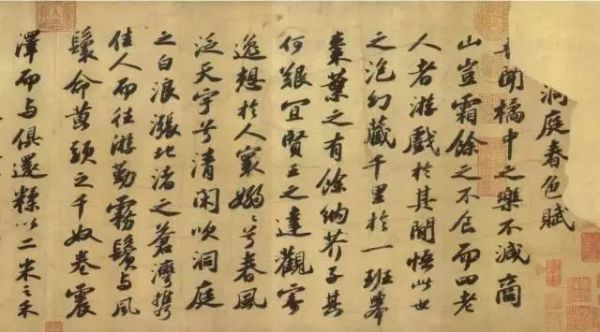 洞庭春色賦
聞橘中之樂不減商
山豈霜餘之不食而四老
人者游戲於其間悟此世
之泡幻藏千里於一班舉
棗葉之有餘納芥子其
何艱宜賢王之達觀寄
逸想於人寰嫋〻兮春風
泛天宇兮清閑吹洞庭
之白浪漲北渚之蒼灣攜
佳人而往游勤霧鬢与風
鬟命黃頭之千奴卷震
澤而与俱還糅以二米之禾